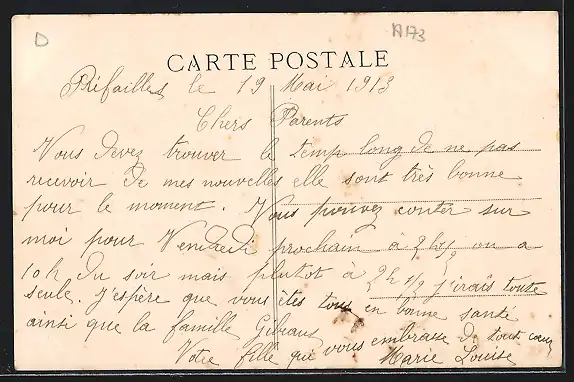 D
A173
CARTE POSTALE
Préfailles le 19 Mai 1913
Chers Parents
Vous devez trouver le temp long de ne pas
recevoir de mes nouvelles elle sont très bonne
pour le moment. Vous pouvez conter sur
moi pour Vendredi prochain à 2 h 1/2 ou a
10 h du soir mais plutot à 2 h 1/2 j'irais toute
seule. J'espère que vous êtes tous en bonne santé
ainsi que la famille
Votre fille qui vous embrasse de tout cœur
Marie Louise